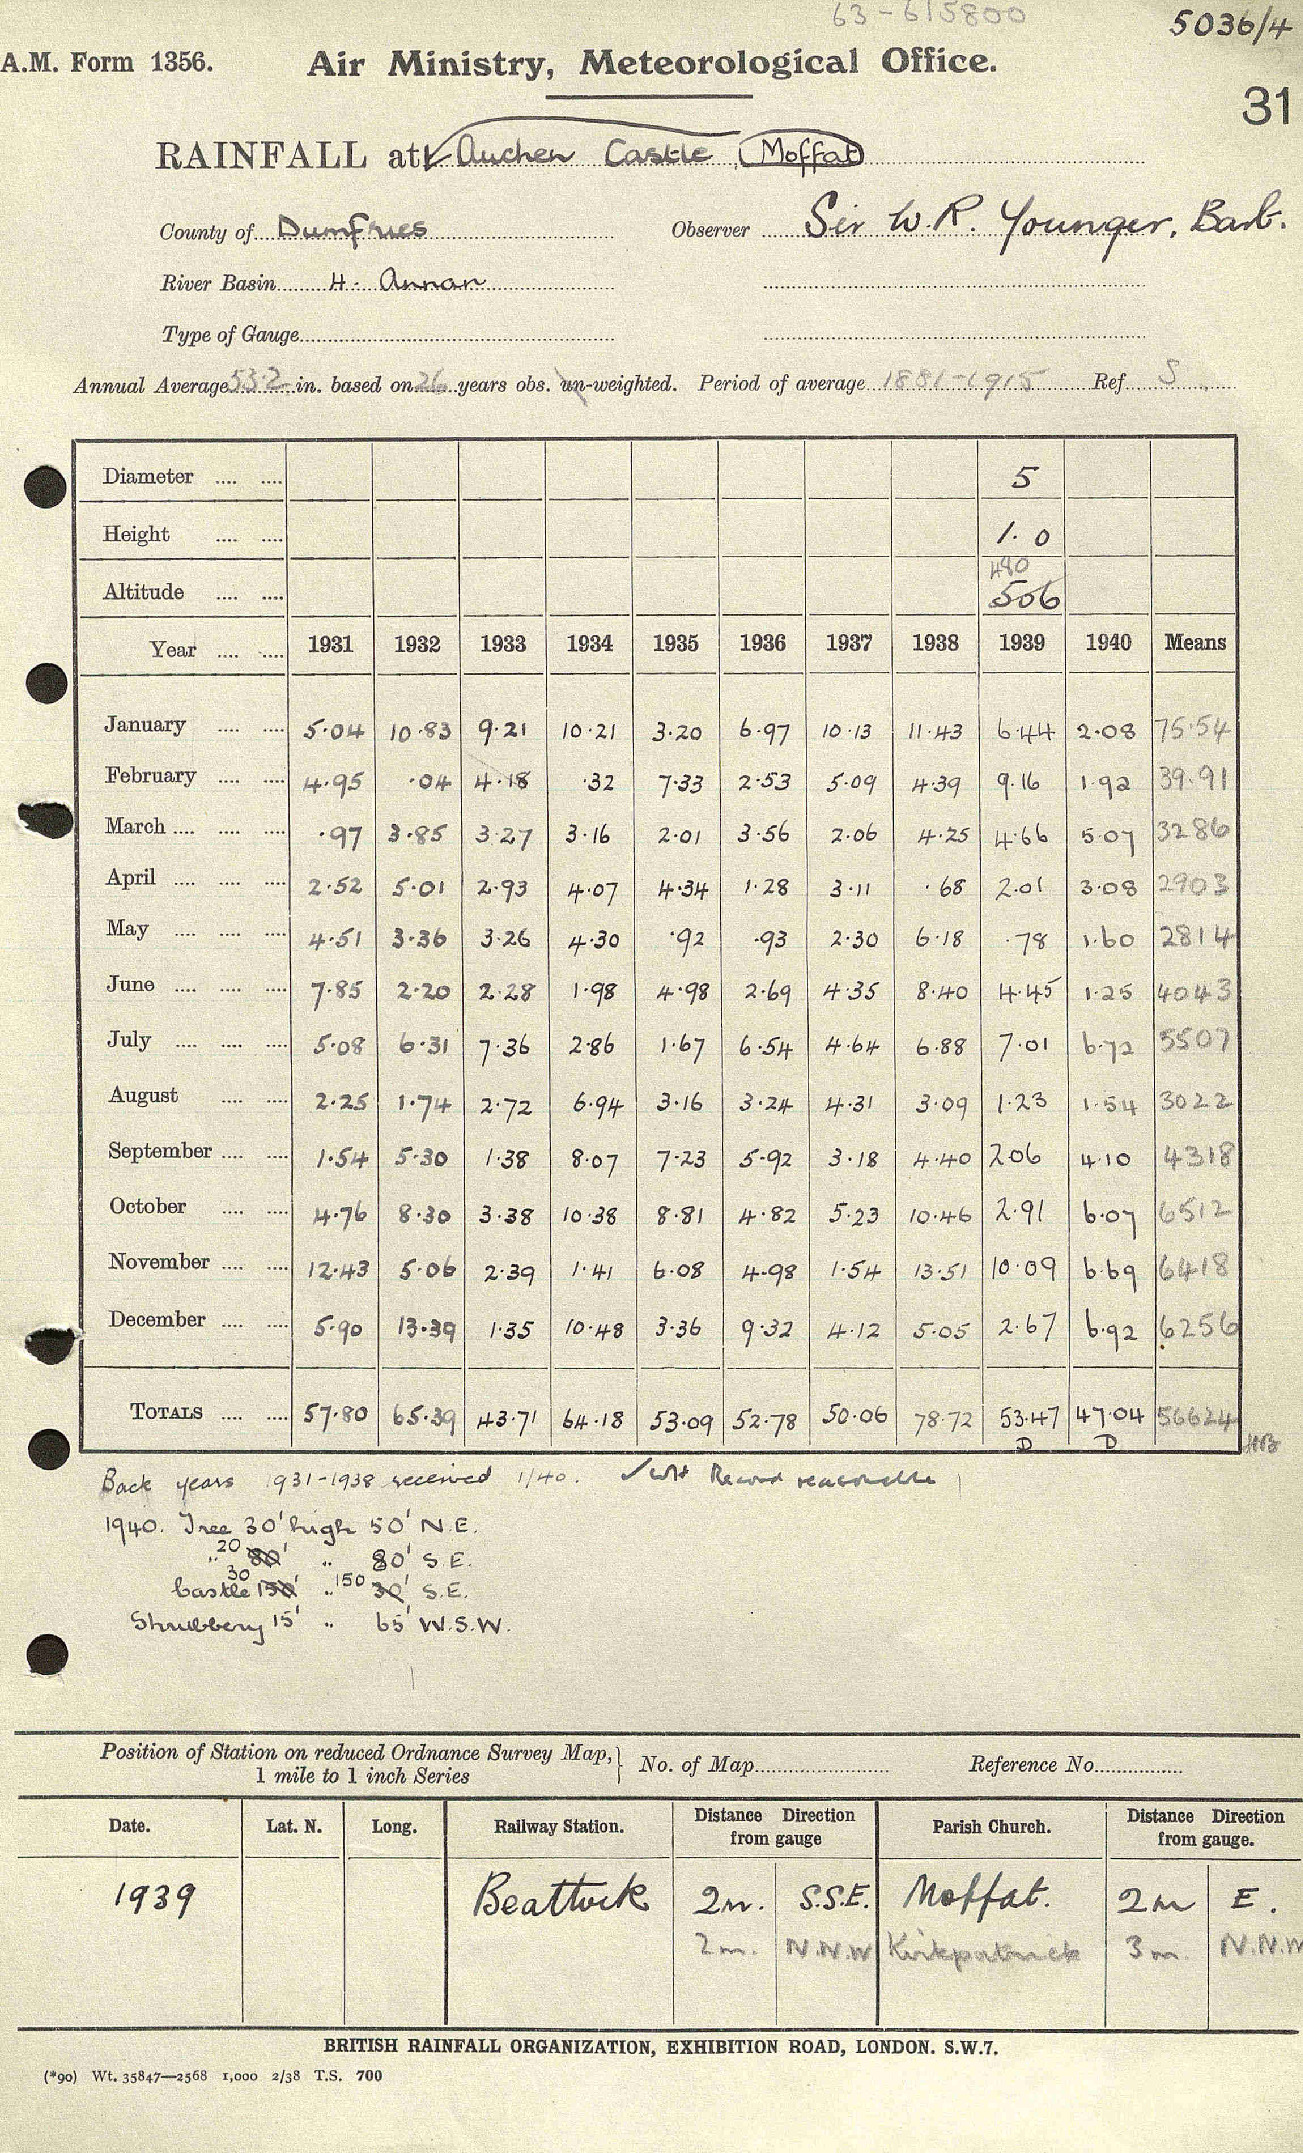 63-615800
5036/4
A.M. Form 1356. Air Ministry, Meteorological Office.
31
RAINFALL at Auchen Castle, Moffat
County of Dumfries Observer Sir W. R. Younger, Bart.
River Basin H. Annan
Type of Gauge
Annual Average 53.2 in. based on 26 years obs. un-weighted. Period of average 1881-1915 Ref S
Diameter 5
Height 1.0
480
Altitude 506
Year 1931 1932 1933 1934 1935 1936 1937 1938 1939 1940 Means
January 5.04 10.83 9.21 10.21 3.20 6.97 10.13 11.43 6.44 2.08 75.54
February 4.95 .04 4.18 .32 7.33 2.53 5.09 4.39 9.16 1.92 39.91
March .97 3.85 3.27 3.16 2.01 3.56 2.06 4.25 4.66 5.07 3286
April 2.52 5.01 2.93 4.07 4.34 1.28 3.11 .68 2.01 3.08 2903
May 4.51 3.36 3.26 4.30 .92 .93 2.30 6.18 .78 1.60 2814
June 7.85 2.20 2.28 1.98 4.98 2.69 4.35 8.40 4.45 1.25 4043
July 5.08 6.31 7.36 2.86 1.67 6.54 4.64 6.88 7.01 6.72 5507
August 2.25 1.74 2.72 6.94 3.16 3.24 4.31 3.09 1.23 1.54 3022
September 1.54 5.30 1.38 8.07 7.23 5.92 3.18 4.40 2.06 4.10 4318
October 4.76 8.30 3.38 10.38 8.81 4.82 5.23 10.46 2.91 6.07 6512
November 12.43 5.06 2.39 1.41 6.08 4.98 1.54 13.51 10.09 6.69 6418
December 5.90 13.39 1.35 10.48 3.36 9.32 4.12 5.05 2.67 6.92 6256
TOTALS 57.80 65.39 43.71 64.18 53.09 52.78 50.06 78.72 53.47 47.04 56624
D D
Back years 1931-1938 received 1/40. Record reasonable
1940. Tree 30' high 50' N.E.
" 20 80' " 80' S.E.
Castle 30 150' " 150 30' S.E.
Shrubbery 15' " 65' W.S.W.
Position of Station on reduced Ordnance Survey Map, 1 mile to 1 inch Series No. of Map Reference No.
Date. Lat. N. Long. Railway Station. Distance Direction from gauge Parish Church. Distance Direction from gauge.
1939 Beattock 2m. S.S.E. Moffat. 2m E.
2m. N.N.W Kirkpatrick 3m. N.N.W
BRITISH RAINFALL ORGANIZATION, EXHIBITION ROAD, LONDON. S.W.7.
(*90) Wt. 35847—2568 1,000 2/38 T.S. 700